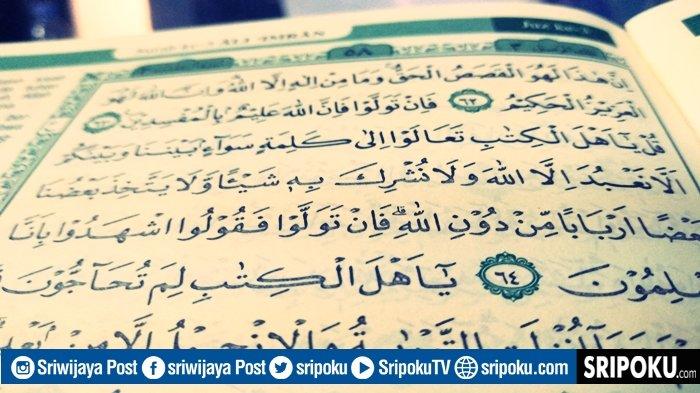 Surah Ke-3 ALI 'IMRAN ٥٨
اِنَّ هٰذَا لَهُوَ الْقَصَصُ الْحَقُّ وَمَا مِنْ اِلٰهٍ اِلَّا اللّٰهُ وَاِنَّ اللّٰهَ لَهُوَ
الْعَزِيْزُ الْحَكِيْمُ ٦٢ فَاِنْ تَوَلَّوْا فَاِنَّ اللّٰهَ عَلِيْمٌ بِالْمُفْسِدِيْنَ
قُلْ يٰٓاَهْلَ الْكِتٰبِ تَعَالَوْا اِلٰى كَلِمَةٍ سَوَاۤءٍ بَيْنَنَا وَبَيْنَكُمْ
اَلَّا نَعْبُدَ اِلَّا اللّٰهَ وَلَا نُشْرِكَ بِهٖ شَيْئًا وَّلَا يَتَّخِذَ بَعْضُنَا
بَعْضًا اَرْبَابًا مِّنْ دُوْنِ اللّٰهِ ۗ فَاِنْ تَوَلَّوْا فَقُوْلُوا اشْهَدُوْا بِاَنَّا
مُسْلِمُوْنَ ٦٤ يٰٓاَهْلَ الْكِتٰبِ لِمَ تُحَاۤجُّوْنَ
Sriwijaya Post sriwijaya Post sripoku SripokuTV sripoku.com SRIPOKU.com